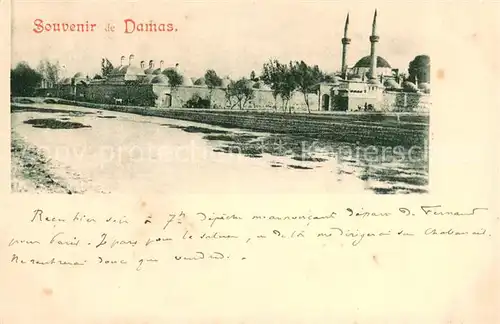 Souvenir de Damas.
Reçu hier soir à 7h dépêche m'annonçant départ de Fernand
pour Paris. Je pars pour le saluer, de là me dirigerai sur
Ne rentrerai donc que vendredi.